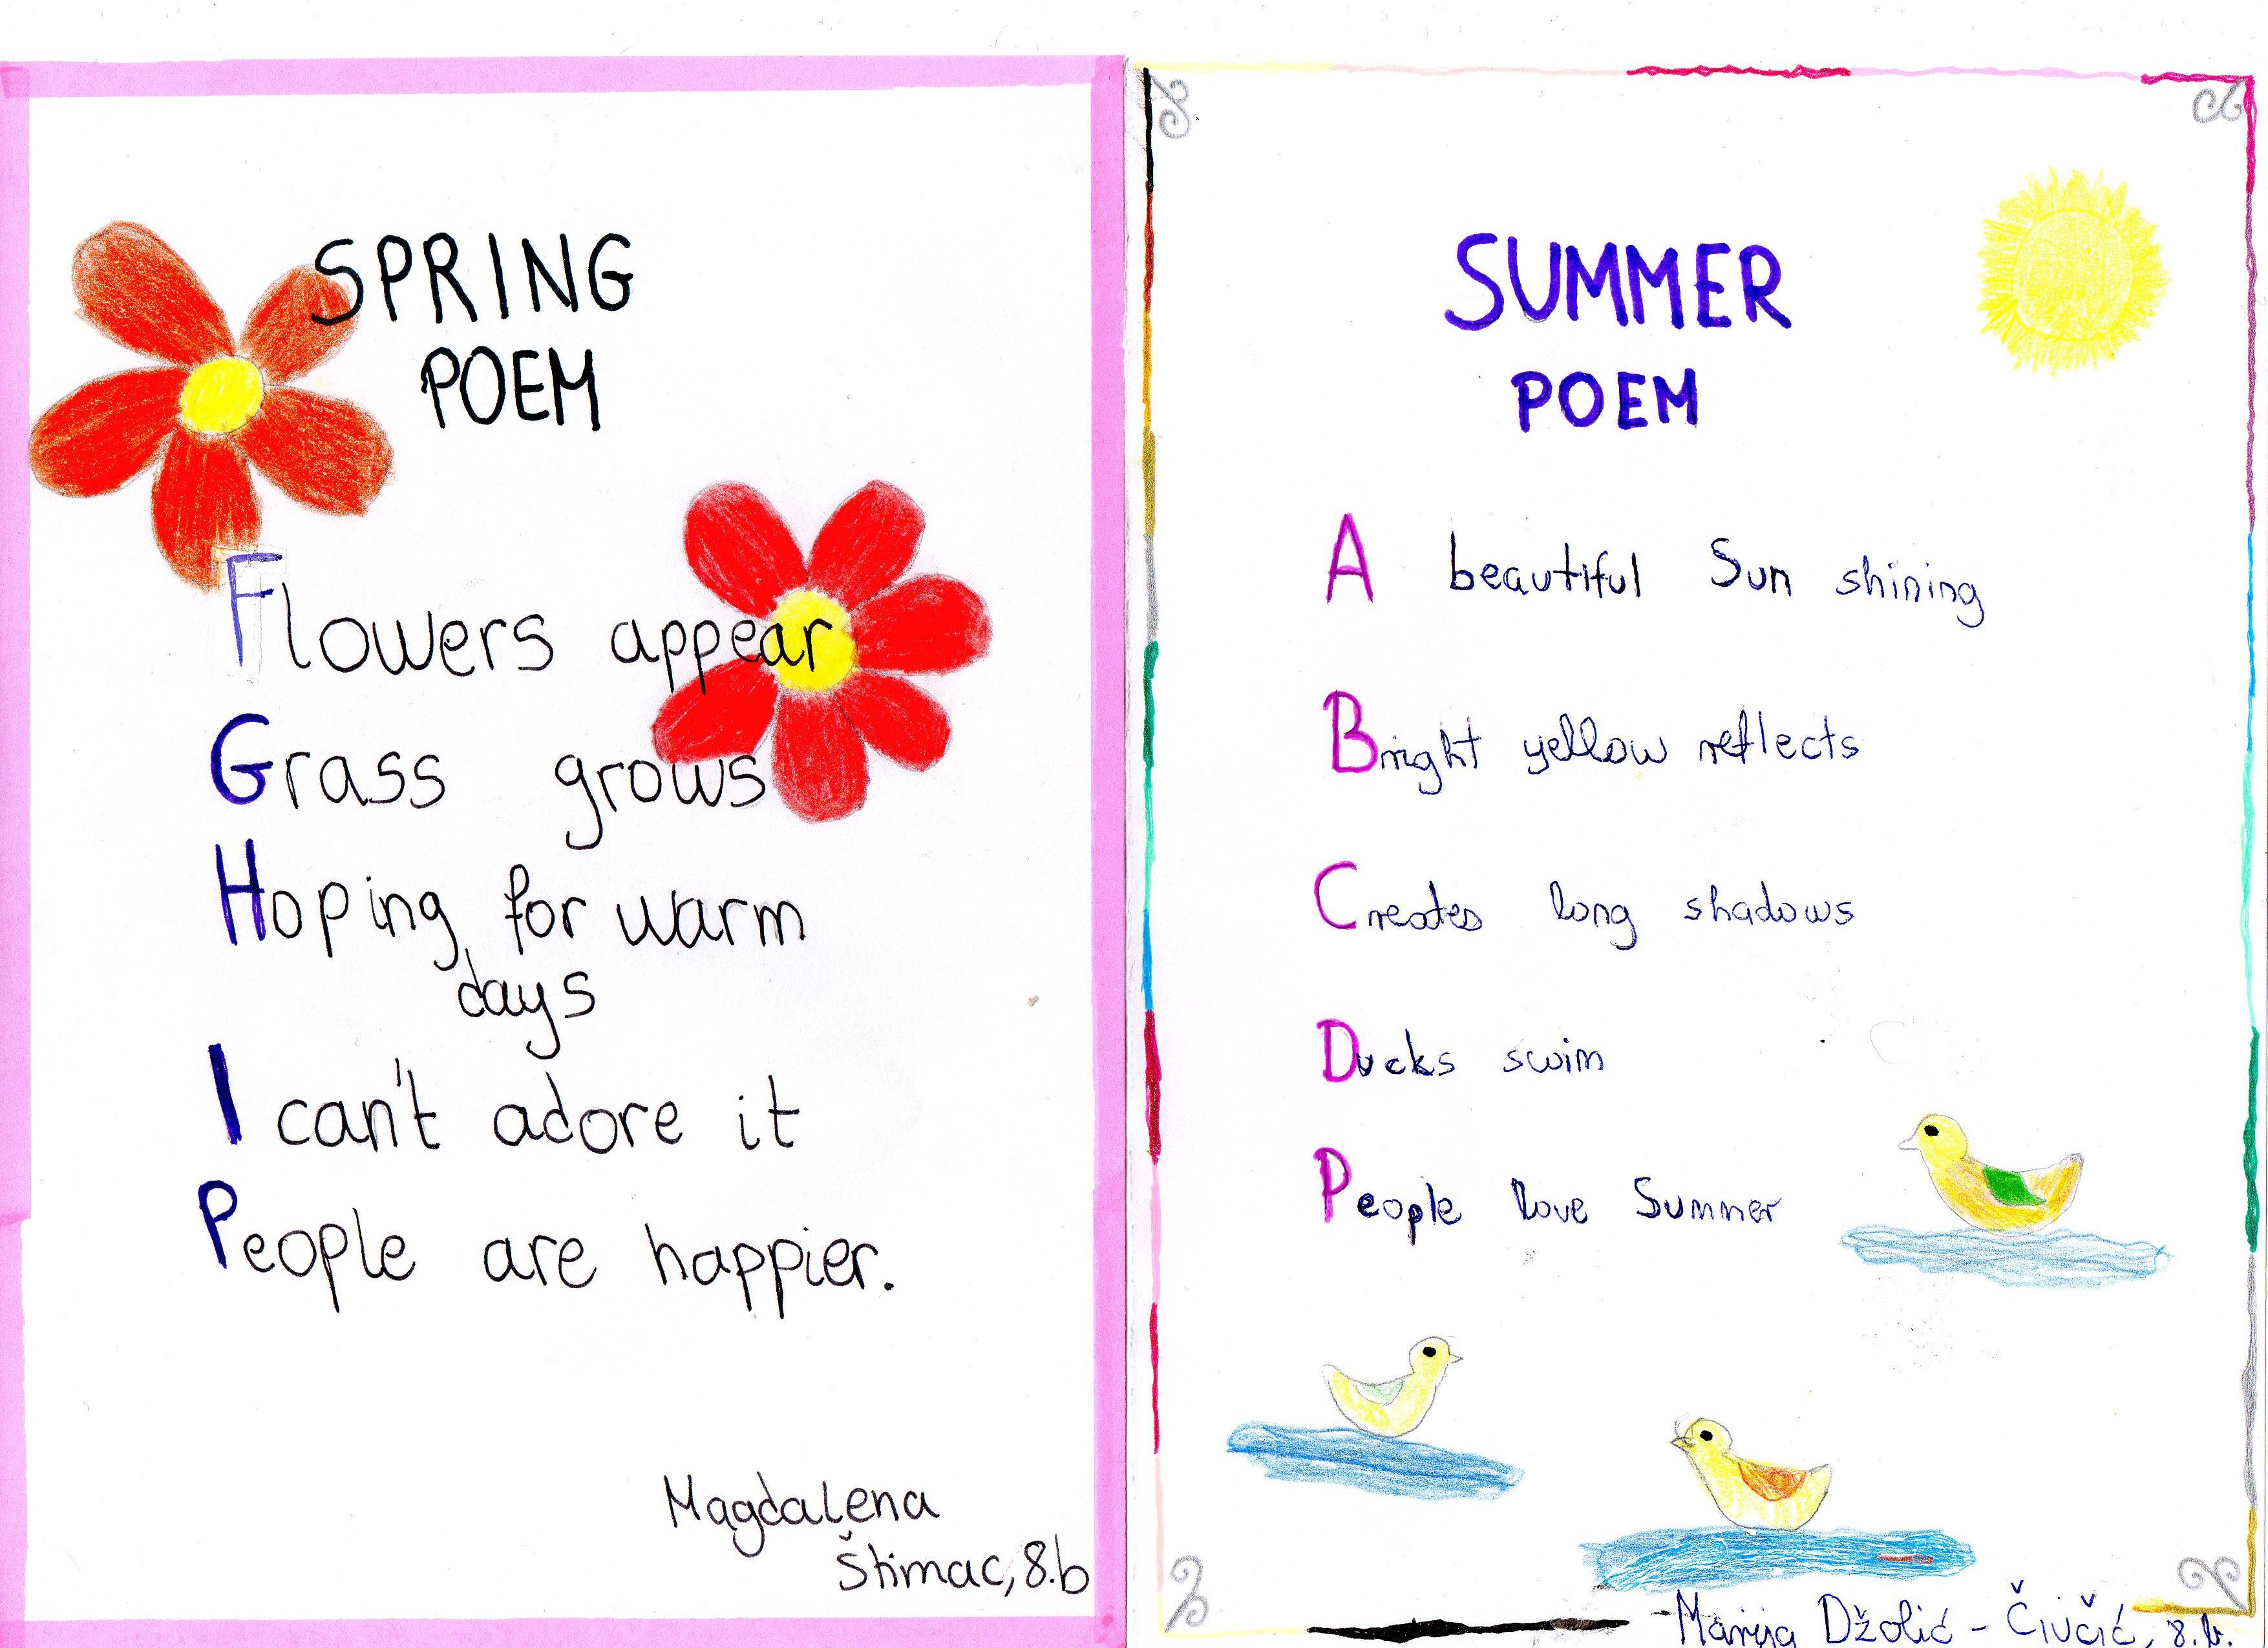 SPRING
POEM
Flowers appear
Grass grows
Hoping for warm
days
I can't adore it
People are happier.
Magdalena
Štimac, 8.b
SUMMER
POEM
A beautiful Sun shining
Bright yellow reflects
Creates long shadows
Ducks swim
People love Summer
Marija Džolić - Čivčić, 8.b.